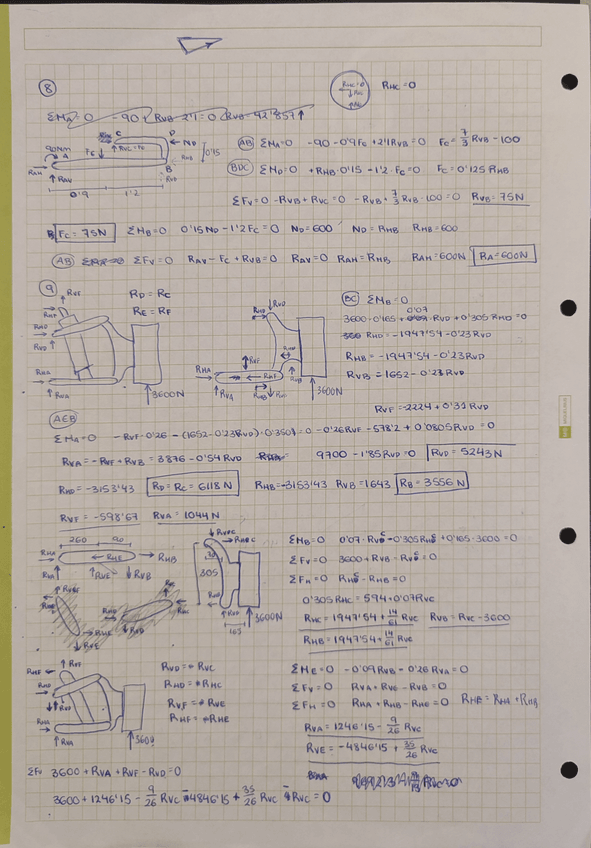 8
RHC=0
ΣMA=0 -90+RVB·2'1=0 RVB=42'857↑
AB ΣMA=0 -90-0'9Fc+2'1RVB=0 Fc=7/3 RVB-100
BDC ΣMD=0 +RHB·0'15-1'2·Fc=0 Fc=0'125 RHB
ΣFV=0 -RVB+RVC=0 -RVB+7/3 RVB·100=0 RVB=75N
90Nm A C D ND
RAH RAV Fc RVC=Fc RHB 0'15
B
0'9 1'2
Fc=75N ΣMB=0 0'15 ND-1'2Fc=0 ND=600 ND=RHB RHB=600
AB ΣFV=0 RAV-Fc+RVB=0 RAV=0 RAH=RHB RAH=600N RA=600N
9
RD=RC
RE=RF
RVF
RHF
RHD
RVD
RHA
RVA
3600N
RVD
RHD
RVF
RHF
RHA
RVA
3600N
BC ΣMB=0
0'07
3600·0'165+RVD+0'305RHD=0
RHD=-1947'54-0'23RVD
RHB=-1947'54-0'23RVD
RVB=1652-0'23RVD
RVF=-2224+0'31RVD
AEB
ΣMA=0 -RVF·0'26-(1652-0'23RVD)·0'350=0 -0'26RVF-578'2+0'0805RVD=0
RVA=-RVF+RVB=3876-0'54RVD 9700-1'85RVD=0 RVD=5243N
RHD=-3153'43 RD=RC=6118N RHB=-3153'43 RVB=1643 RB=3556N
RVF=-598'67 RVA=1044N
260 90
RHA RHE RHB
RHA RVE RVB
RVC
RHC
305
165
3600N
ΣMB=0 0'07·RVC-0'305RHC+0'165·3600=0
ΣFV=0 3600+RVB-RVC=0
ΣFH=0 RHC-RHB=0
0'305RHC=594+0'07RVC
RHC=1947'54+14/61 RVC RVB=RVC-3600
RHB=1947'54+14/61 RVC
RVF
RHF
RHD
RVD
RHA
RVA
3600
RVD=RVC
RHD=RHC
RVF=RVE
RHF=RHE
ΣME=0 -0'09RVB-0'26RVA=0
ΣFV=0 RVA+RVE-RVB=0
ΣFH=0 RHA+RHB-RHE=0 RHE=RHA+RHB
RVA=1246'15-9/26 RVC
RVE=-4846'15+35/26 RVC
ΣFV 3600+RVA+RVF-RVD=0
3600+1246'15-9/26 RVC-4846'15+35/26 RVC-RVC=0